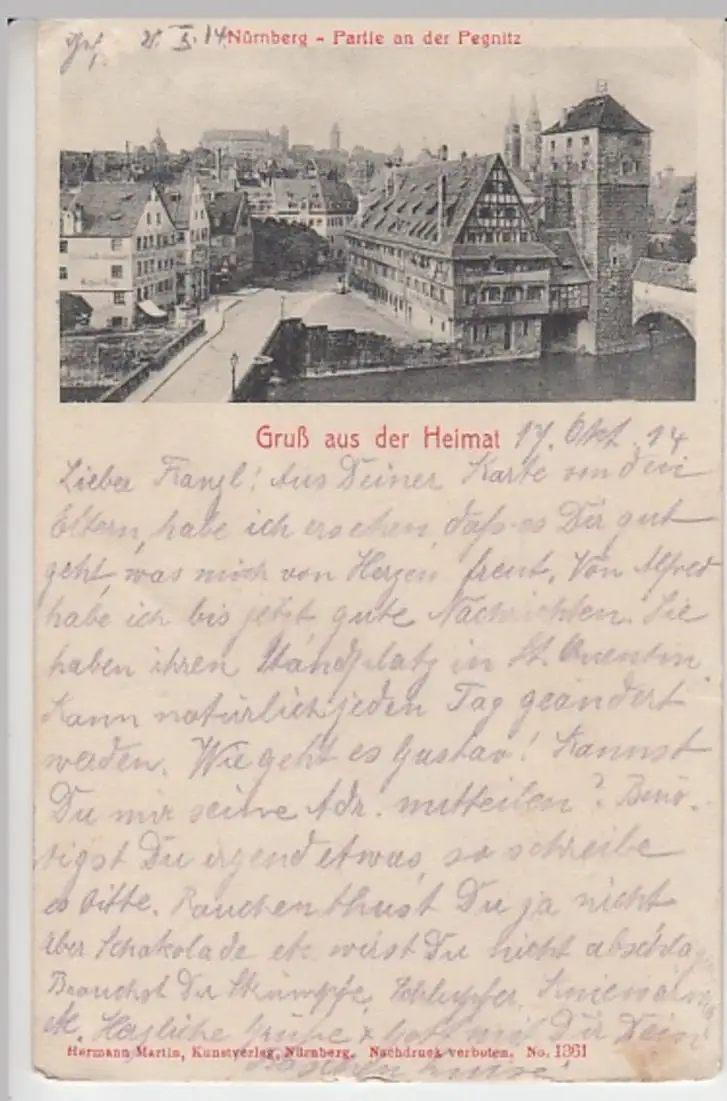 21. X. 14
Nürnberg - Partie an der Pegnitz
Gruß aus der Heimat 17. Okt. 14
Lieber Franzl! Aus Deiner Karte von den
Eltern, habe ich ersehen, daß es Dir gut
geht, was mich von Herzen freut. Von Alfred
habe ich bis jetzt gute Nachrichten. Sie
haben ihren Standplatz in St. Quentin
Kann natürlich jeden Tag geändert
werden. Wie geht es Gustav! Kannst
Du mir seine Adr. mitteilen? Benö-
tigst Du irgend etwas, so schreibe
es bitte. Rauchen thust Du ja nicht
aber Schakolade etc wirst Du nicht abschla
Brauchst Du Strümpfe, Schlupfer, Kniewärm
etc. Herzliche Grüße & Gott mit Dir Dein
Hermann Martin, Kunstverlag, Nürnberg. Nachdruck verboten. No. 1361